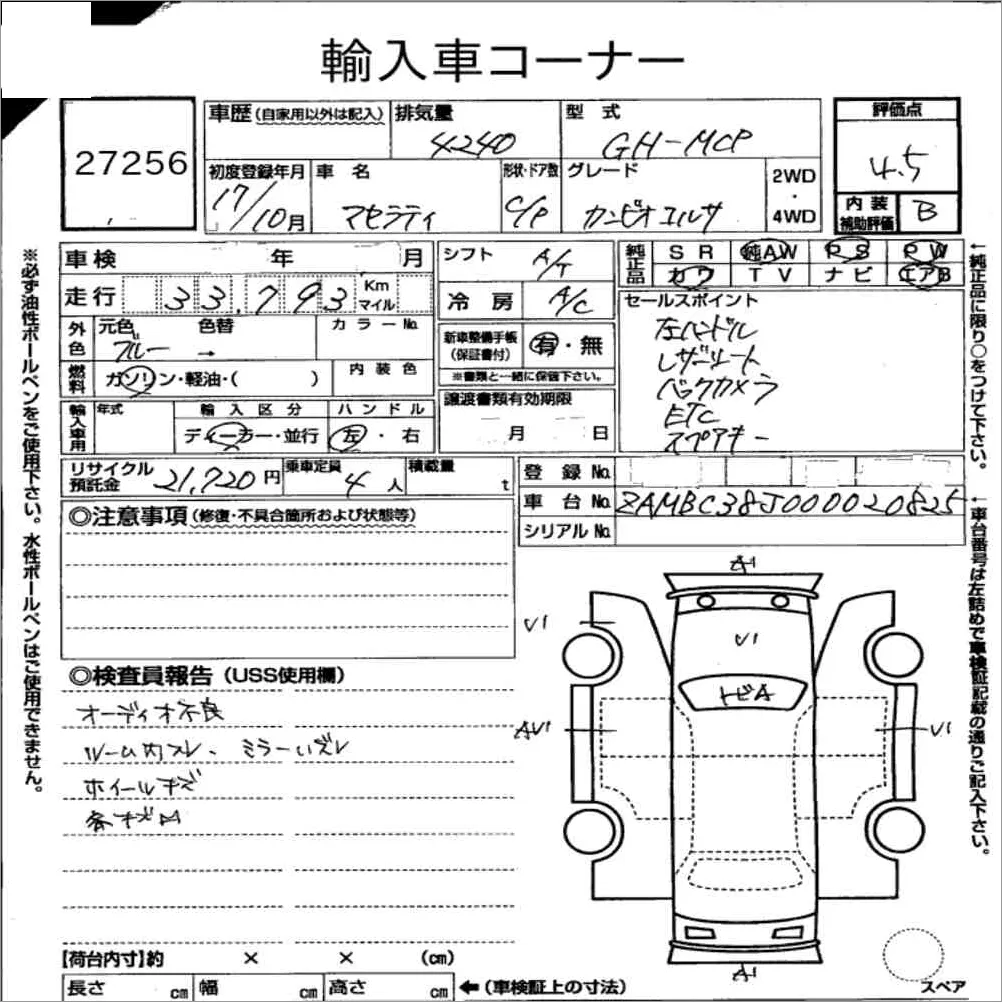 輸入車コーナー
27256
車歴 (自家用以外は記入) 排気量 型式 評価点
4240 GH-MCP 4.5
初度登録年月 車名 形状・ドア数 グレード 2WD・4WD 内装補助評価 B
17/10月 マセラティ C/P カンビオコルサ
車検 年 月 シフト A/T 純正品 SR 純AW PS PW
走行 33,793 Km マイル 冷房 A/C カワ TV ナビ エアB
外色 元色 色替 カラーNo. 新車整備手帳(保証書付) 有・無 セールスポイント
ブルー → ※書類と一緒に保管下さい。 左ハンドル
燃料 ガソリン・軽油・( ) 内装色 レザーシート
輸入車用 年式 輸入区分 ハンドル 譲渡書類有効期限 バックカメラ
ディーラー・並行 左・右 月 日 ETC
スペアキー
リサイクル預託金 21,720円 乗車定員 4人 積載量 t 登録No.
車台No. ZAMBC38J000020825
シリアルNo.
◎注意事項 (修復・不具合箇所および状態等)
◎検査員報告 (USS使用欄)
オーディオ不良
ルーム内スレ、ミラーいズレ
ホイールキズ
各キズ凹
【荷台内寸】約 × × (cm)
長さ cm 幅 cm 高さ cm ←(車検証上の寸法)
A1
V1
V1
トビA
AV1
V1
A1
スペア
※必ず油性ボールペンをご使用下さい。水性ボールペンはご使用できません。
←純正品に限り○をつけて下さい。
←車台番号は左詰めで車検証記載の通りご記入下さい。